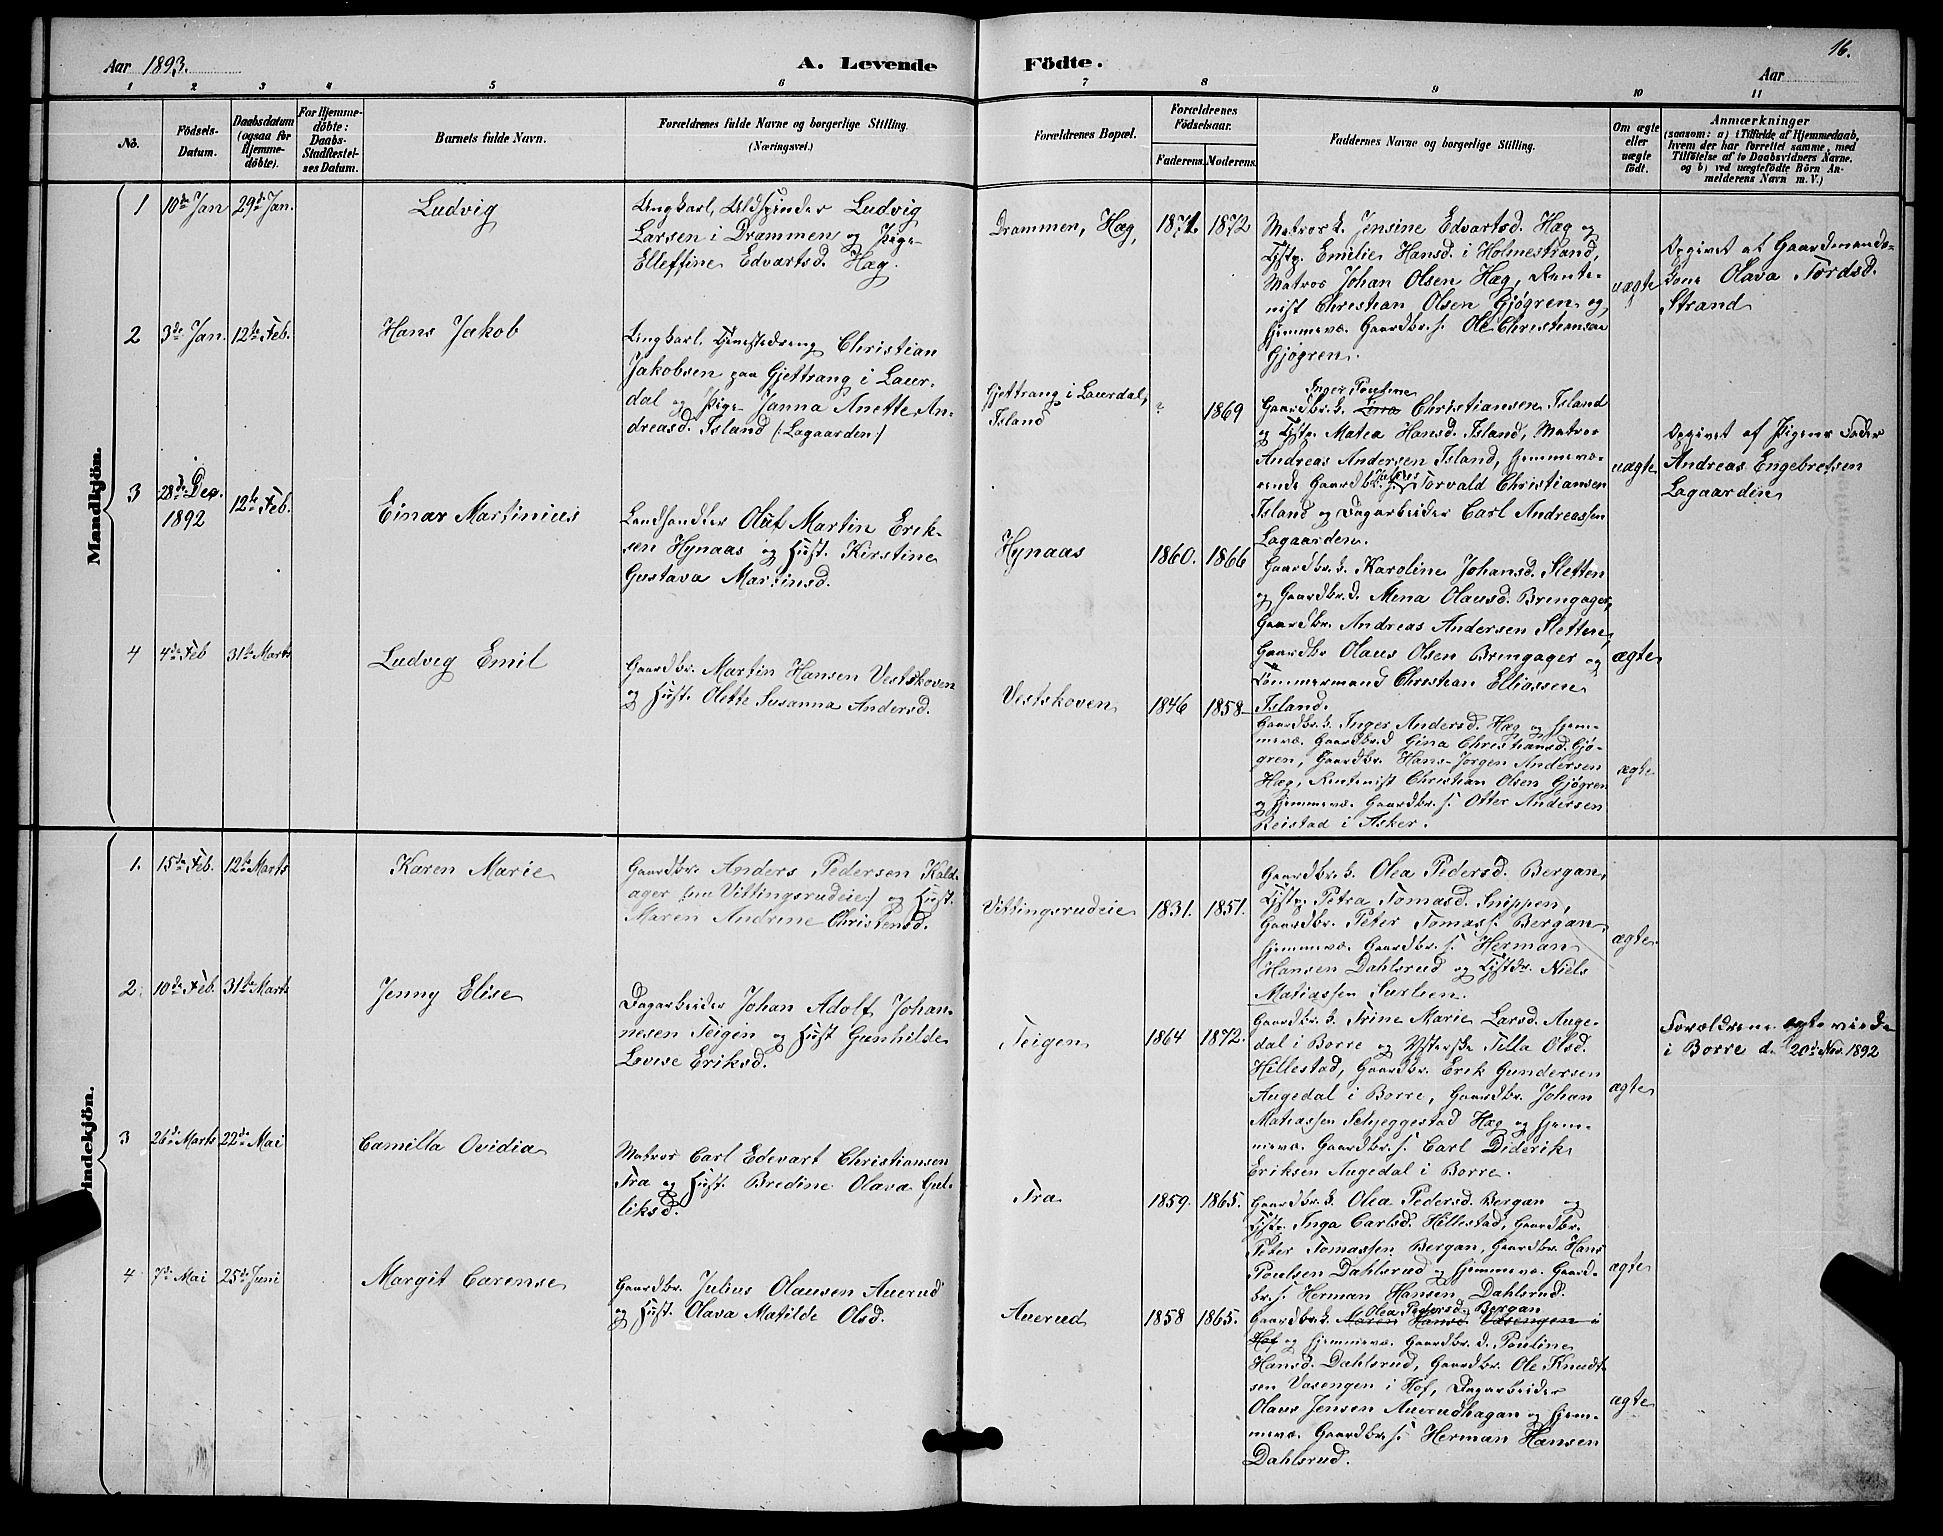 16.
Aar 1893.
A. Levende
Födte.
Aar
1 2 3 4 5 6 7 8 9 10 11
No.
Födsels-
Datum.
Daabsdatum
(ogsaa for
Hjemme-
döbte).
For Hjemme-
döbte:
Daabs-
Stadfæstel-
ses Datum.
Barnets fulde Navn.
Forældrenes fulde Navne og borgerlige Stilling.
(Næringsvei.)
Forældrenes Bopæl.
Forældrenes
Födselsaar.
Faderens.
Moderens.
Faddernes Navne og borgerlige Stilling.
Om ægte
eller
uægte
födt.
Anmærkninger
(saasom: a) i Tilfælde af Hjemmedaab,
hvem der har forrettet samme, med
Tilföielse af to Daabsvidners Navne.
og b) ved uægtefödte Börn An-
melderens Navn m. V.)
Mandkjön.
1
10de Jan
29de Jan.
Ludvig
Ungkarl, Uldspinder Ludvig
Larsen i Drammen og Pige
Elleffine Edvartsd. Hæg.
Drammen, Hæg,
1871.
1872
Matros k. Jensine Edvartsd. Hæg og
Tjstp. Emilie Hansd. i Holmestrand,
Matros Johan Olsen Hæg, Rente-
nist Christian Olsen Gjögren og
hjemmevæ. Gaardbr. s. Ole Christiansen
Gjögren.
uægte
Opgivet af Gaardmands-
kone Olava Tordsd.
Strand
2
3de Jan.
12te Feb.
Hans Jakob
Ungkarl, Tjenestedreng Christian
Jakobsen paa Gjettrang i Laur-
dal og Pige Janna Anette An-
dreasd. Island (:Lagaarden:)
Gjettrang i Laurdal,
Island
?
1869
Inger Pouline
Gaardbr. k. Christiansen Island
og Tjstp. Matea Hansd. Island, Matros
Andreas Andersen Island, hjemmevæ-
rende Gaardbr. s. Torvald Christiansen
Island og Dagarbeider Carl Andreassen
Lagaarden.
uægte
Opgivet af Pigens Fader
Andreas Engebretsen
Lagaarden
3
28de Dec.
1892
12te Feb.
Einar Martinius
Landhandler Oluf Martin Erik-
sen Hynaas og Hust. Kirstine
Gustava Martinsd.
Hynaas
1860.
1866
Gaardbr. k. Karoline Johansd. Sletten
og Gaardbr. d. Mena Olausd. Bringager,
Gaardbr. Andreas Andersen Sletten,
Gaardbr Olaus Olsen Bringager og
Tömmermand Christian Elliassen
Island.
ægte
4
4de Feb
31te Marts
Ludvig Emil
Gaardbr. Martin Hansen Vestskoven
og Hust. Olette Susanna Andersd.
Vestskoven
1846
1858
Gaardbr. k. Inger Andersd. Hæg og hjem-
mevæ. Gaardbr. d Gina Christiansd. Gjö-
gren, Gaardbr. Hans Jörgen Andersen
Hæg, Rentenist Christian Olsen Gjögren
og hjemmevæ. Gaardbr. s. Otter Andersen
Reistad i Asker.
ægte
indekjön.
1.
15de Feb.
12te Marts
Karen Marie
Gaardbr. Anders Pedersen Kald-
ager (nu Vittingsrudeie:) og Hust.
Maren Andrine Christensd.
Vittingsrudeie
1831.
1851.
Gaardbr. k. Olea Pedersd. Bergan,
Tjstp. Petra Tomasd. Snippen,
Gaardbr. Peter Tomass. Bergan
hjemmevæ. Gaardbr. s. Herman
Hansen Dahlsrud og Tjstdr. Niels
Matiassen Sörlien.
ægte
2.
10de Feb.
31te Marts
Jenny Elise
Dagarbeider Johan Adolf Johan-
nesen Teigen og Hust Gunhilde
Lovise Eriksd.
Teigen
1864
1872.
Gaardbr. k. Trine Marie Larsd. Auge-
dal i Borre og Tilla Olsd.
Hillestad, Gaardbr. Erik Gundersen
Augedal i Borre, Gaardbr. Johan
Matiassen Schjeggestad Hæg og hjem-
mevæ. Gaardbr. s. Carl Diderik
Eriksen Augedal i Borre.
ægte
Forældrene ægteviede
i Borre d. 20de Nov. 1892
3
26de Marts
22de Mai
Camilla Ovidia
Matros Carl Edevart Christiansen
Fra og Hust. Bredine Olava Gul-
liksd.
Fra
1859.
1865.
Gaardbr. k. Olea Pedersd. Bergan og
Tjstp. Inga Carlsd. Hillestad, Gaardbr.
Peter Tomassen Bergan, Gaardbr. Hans
Poulsen Dahlsrud og hjemmevæ. Gaard-
br. s. Herman Hansen Dahlsrud.
ægte
4
7de Mai
25de Juni
Margit Carense
Gaardbr. Julius Olausen Auerud
og Hust. Olava Matilde Olsd.
Auerud
1858
1865.
Olea Pedersd. Bergan
Gaardbr. k. Maren Hansd. Vasengen i
Hof og hjemmevæ. Gaardbr. d. Pouline
Hansd. Dahlsrud, Gaardbr. Ole Knudt-
sen Vasengen i Hof, Dagarbeider
Olaus Jensen Auerudhagan og hjem-
mevæ. Gaardbr. s. Herman Hansen
Dahlsrud.
ægte